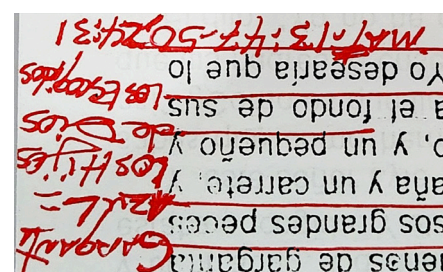 de garganta GARGANTA
sos grandes peces AZUL=
aña y un carrete, y LOS HIJOS
o, y un pequeño y de Dios
a el fondo de sus los Escogidos
Yo desearía que lo
MAT-13:47-50,24:31